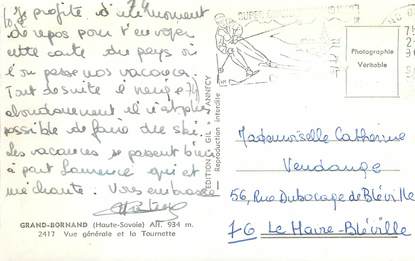 Je profite d'un moment
de repos pour t'envoyer
cette carte du pays où
l'on passe nos vacances.
Tout de suite il neige
abondamment il n'est plus
possible de faire du ski.
Les vacances se passent bien
à part Laurence qui est
méchante.
GRAND-BORNAND (Haute-Savoie) Alt. 934 m.
2417 Vue générale et la Tournette
EDITION "GIL" ANNECY
Reproduction interdite
SUPER
Photographie
Véritable
Mademoiselle Catherine
Vendange
56, Rue Dubocage de Bléville
76 Le Havre-Bléville